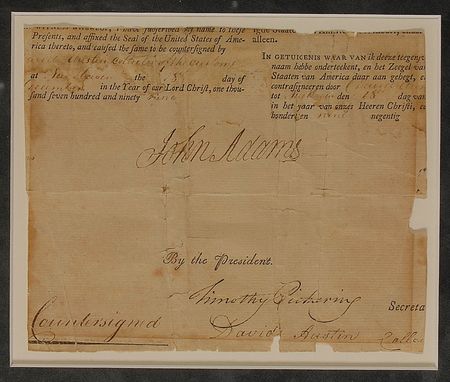 IN WITNESS WHEREOF, I have subscribed my name to these
Presents, and affixed the Seal of the United States of Ame-
rica thereto, and caused the same to be countersigned by
David Austin Collector of the customs
at New Haven the day of
in the Year of our Lord Christ, one thou-
sand seven hundred and ninety nine
alleen.
IN GETUIGENIS WAAR VAN ik deeze tegenwo
naam hebbe onderteekent, en het Zeegel va
Staaten van America daar aan gehegt, e
contrasigneeren door
tot den dag va
in het jaar van onzes Heeren Christi, e
honderd en negentig
John Adams
By the President.
Timothy Pickering
Secreta
Countersigned
David Austin Collec